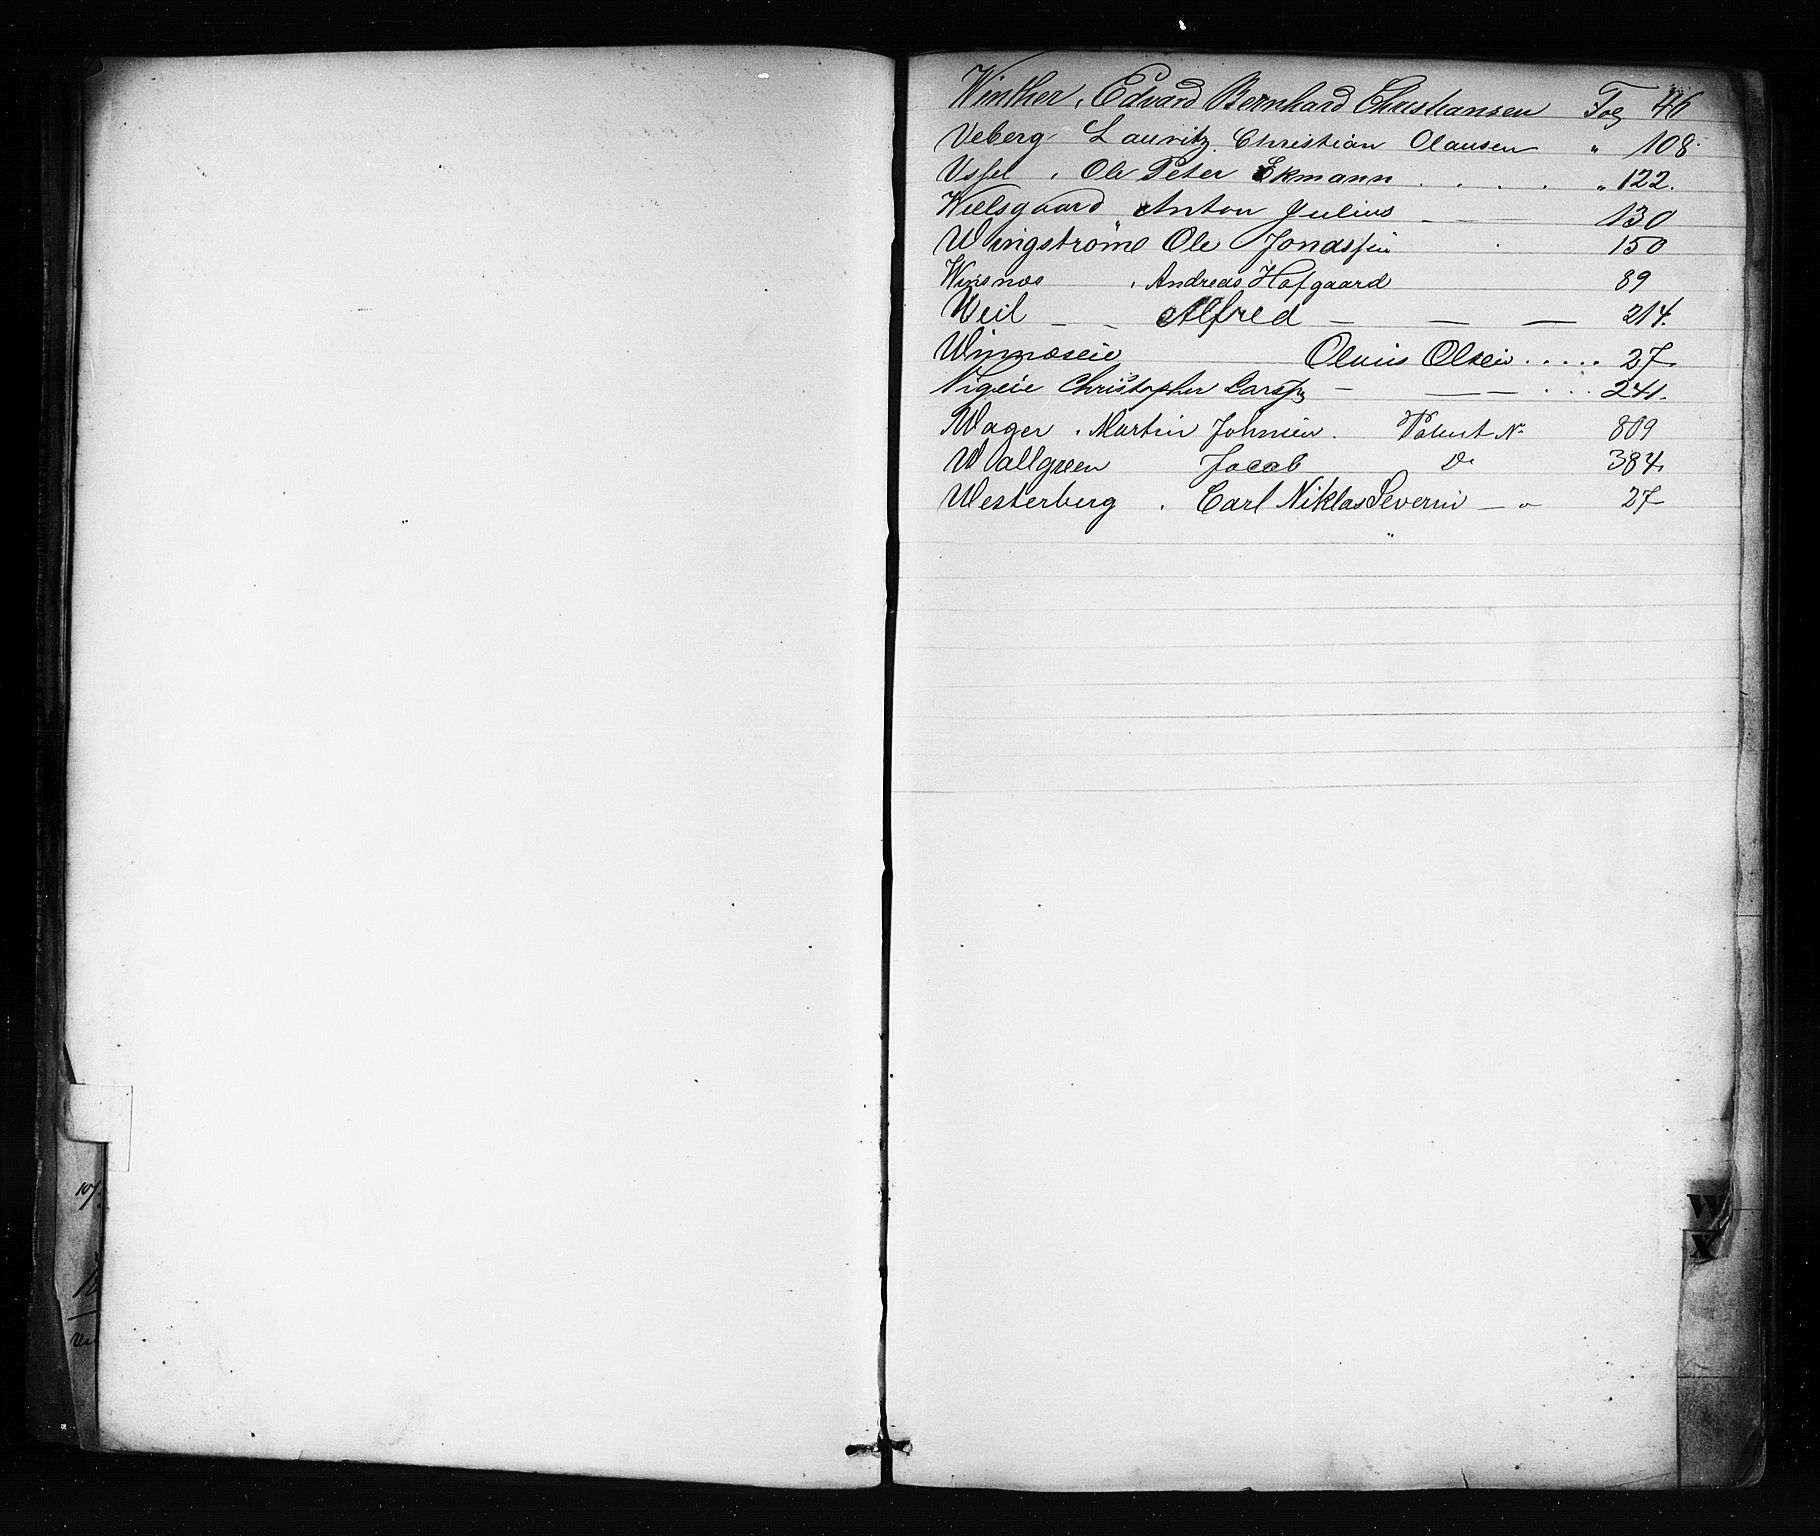 Winther, Edvard Bernhard Christiansen Fog 46
Veberg Lauritz Christian Olausen " 108
Ole Peter Ekmann . . . . " 122.
Wielsgaard Anton Julius — — — 130
Wingstrøme Ole Jonassen 150
Winsnæs , Andreas Hofgaard 89
Weil — — Alfred — — — 214.
Olaus Olsen ..... 27
Christopher Larss — — — ... 241.
Wager , Martin Johnsen . Patent No 809
Wallgreen Jacob Do 384.
Westerberg , Carl Niklas Severin — " 27
W
X